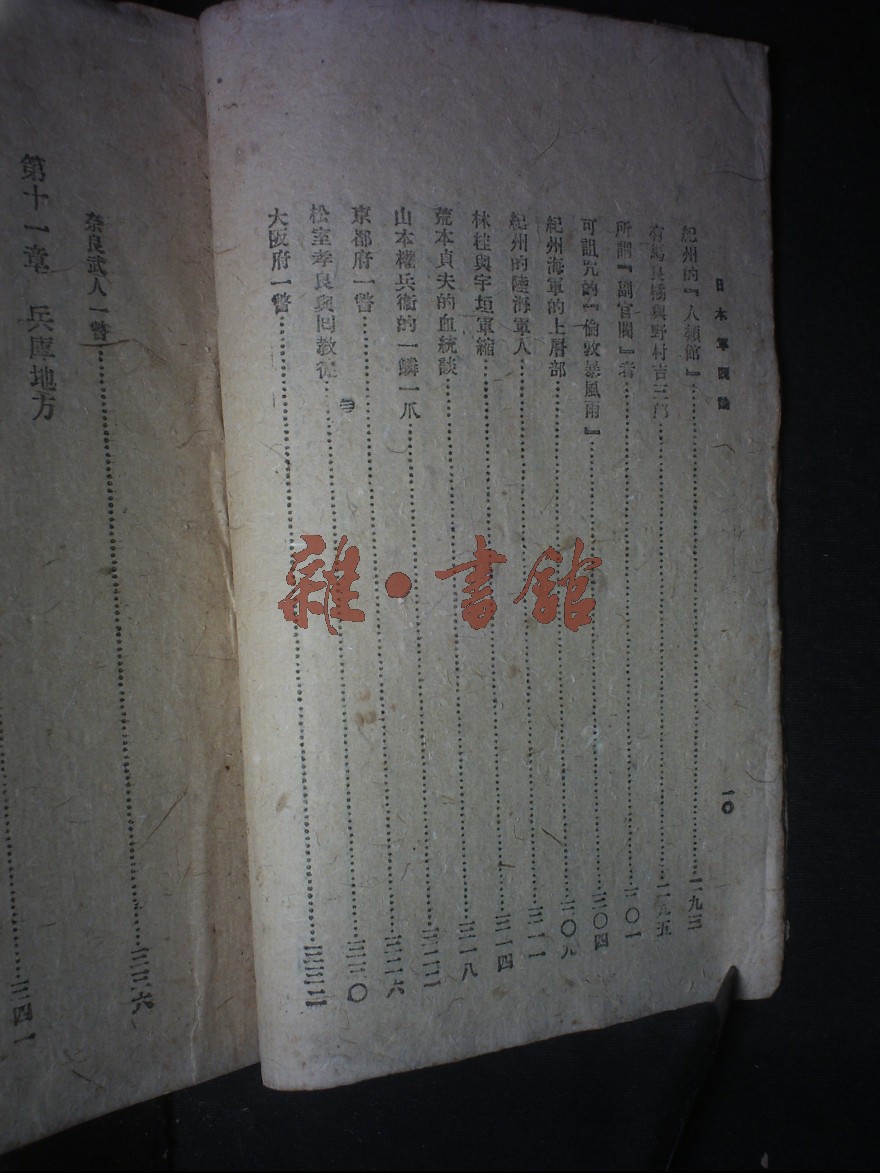 日本軍閥論 一〇
紀州的『人類館』……一九三
有馬良橘與野村吉三郎……一九五
所謂『副官閥』者……二〇一
可詛咒的『倫敦暴風雨』……二〇四
紀州海軍的上層部……二〇九
紀州的陸海軍人……二一一
林桂與宇垣軍縮……二一四
荒木貞夫的血統談……二一八
山本權兵衛的一鱗一爪……二二二
京都府一瞥……二二六
松室孝良與回教徒……二三〇
大阪府一瞥……
奈良武人一瞥……二三六
第十一章 兵庫地方……二四一
雜·書館